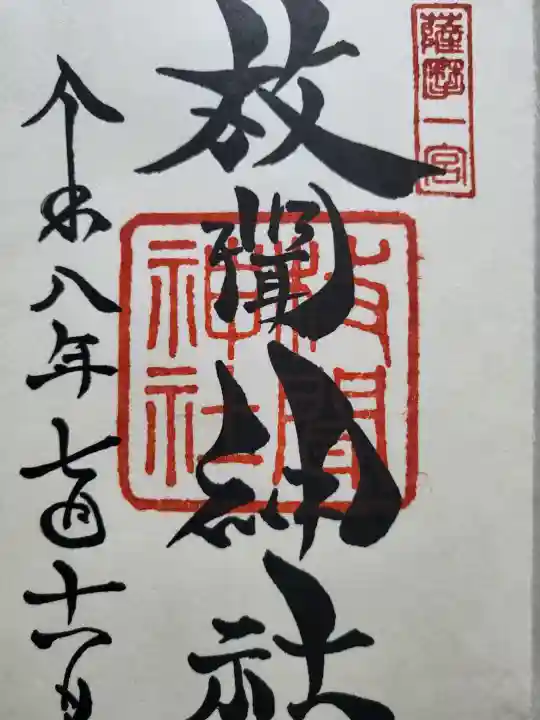 薩摩一宮
枚聞神社
枚聞
神社
令和八年七月十六日